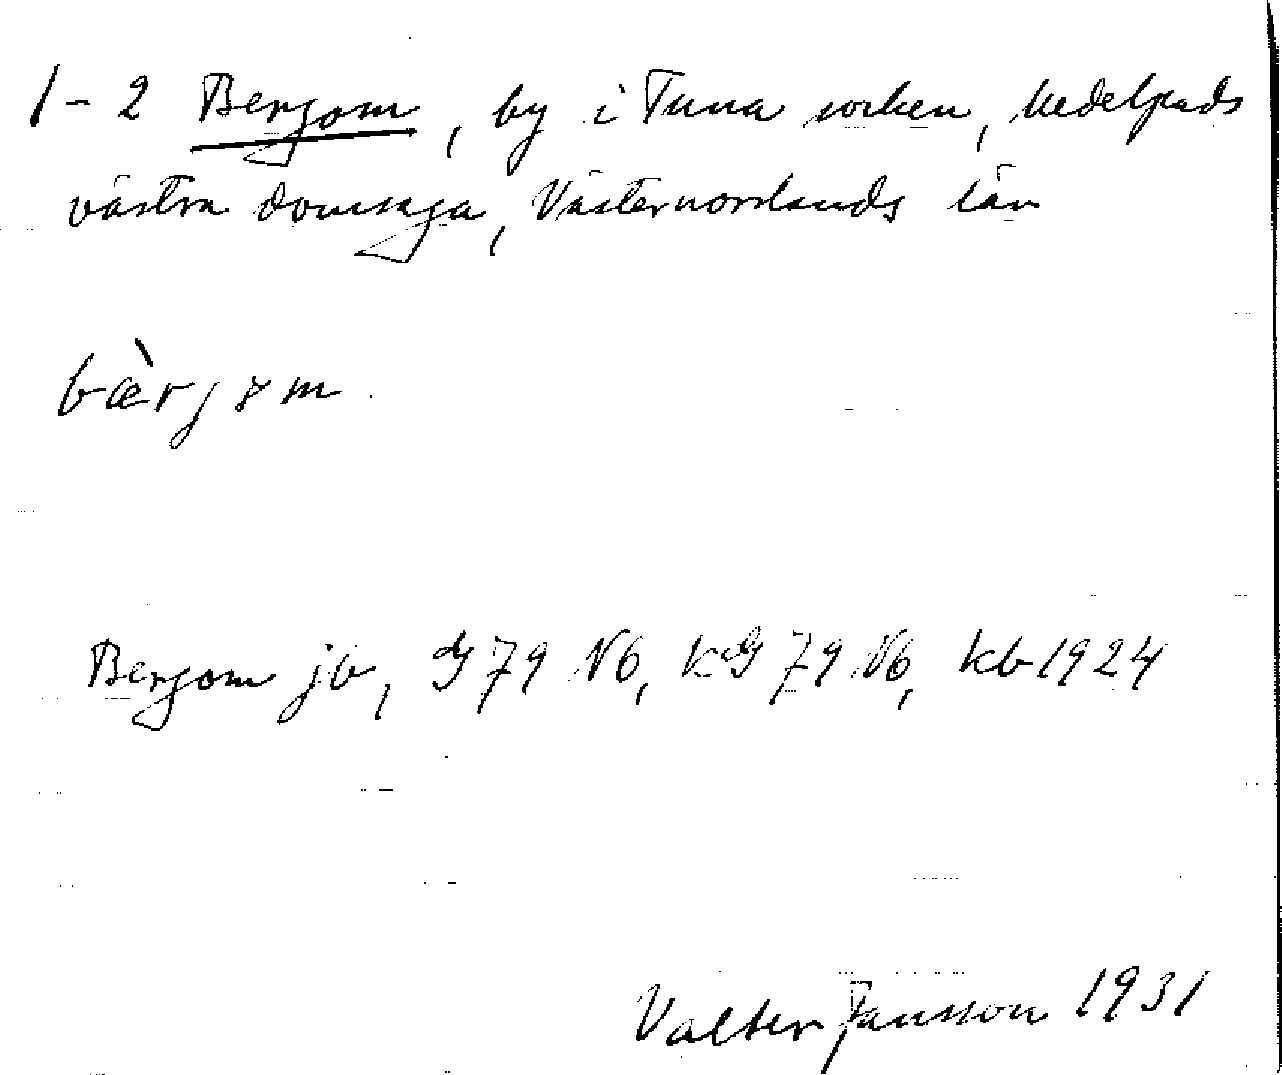 1-2 Bergom, by i Tuna socken, Medelpads
västra domsaga, Västernorrlands län
bærjom
Bergom jb, G 79 N6, KG 79 N6, kb 1924
Valter Jansson 1931